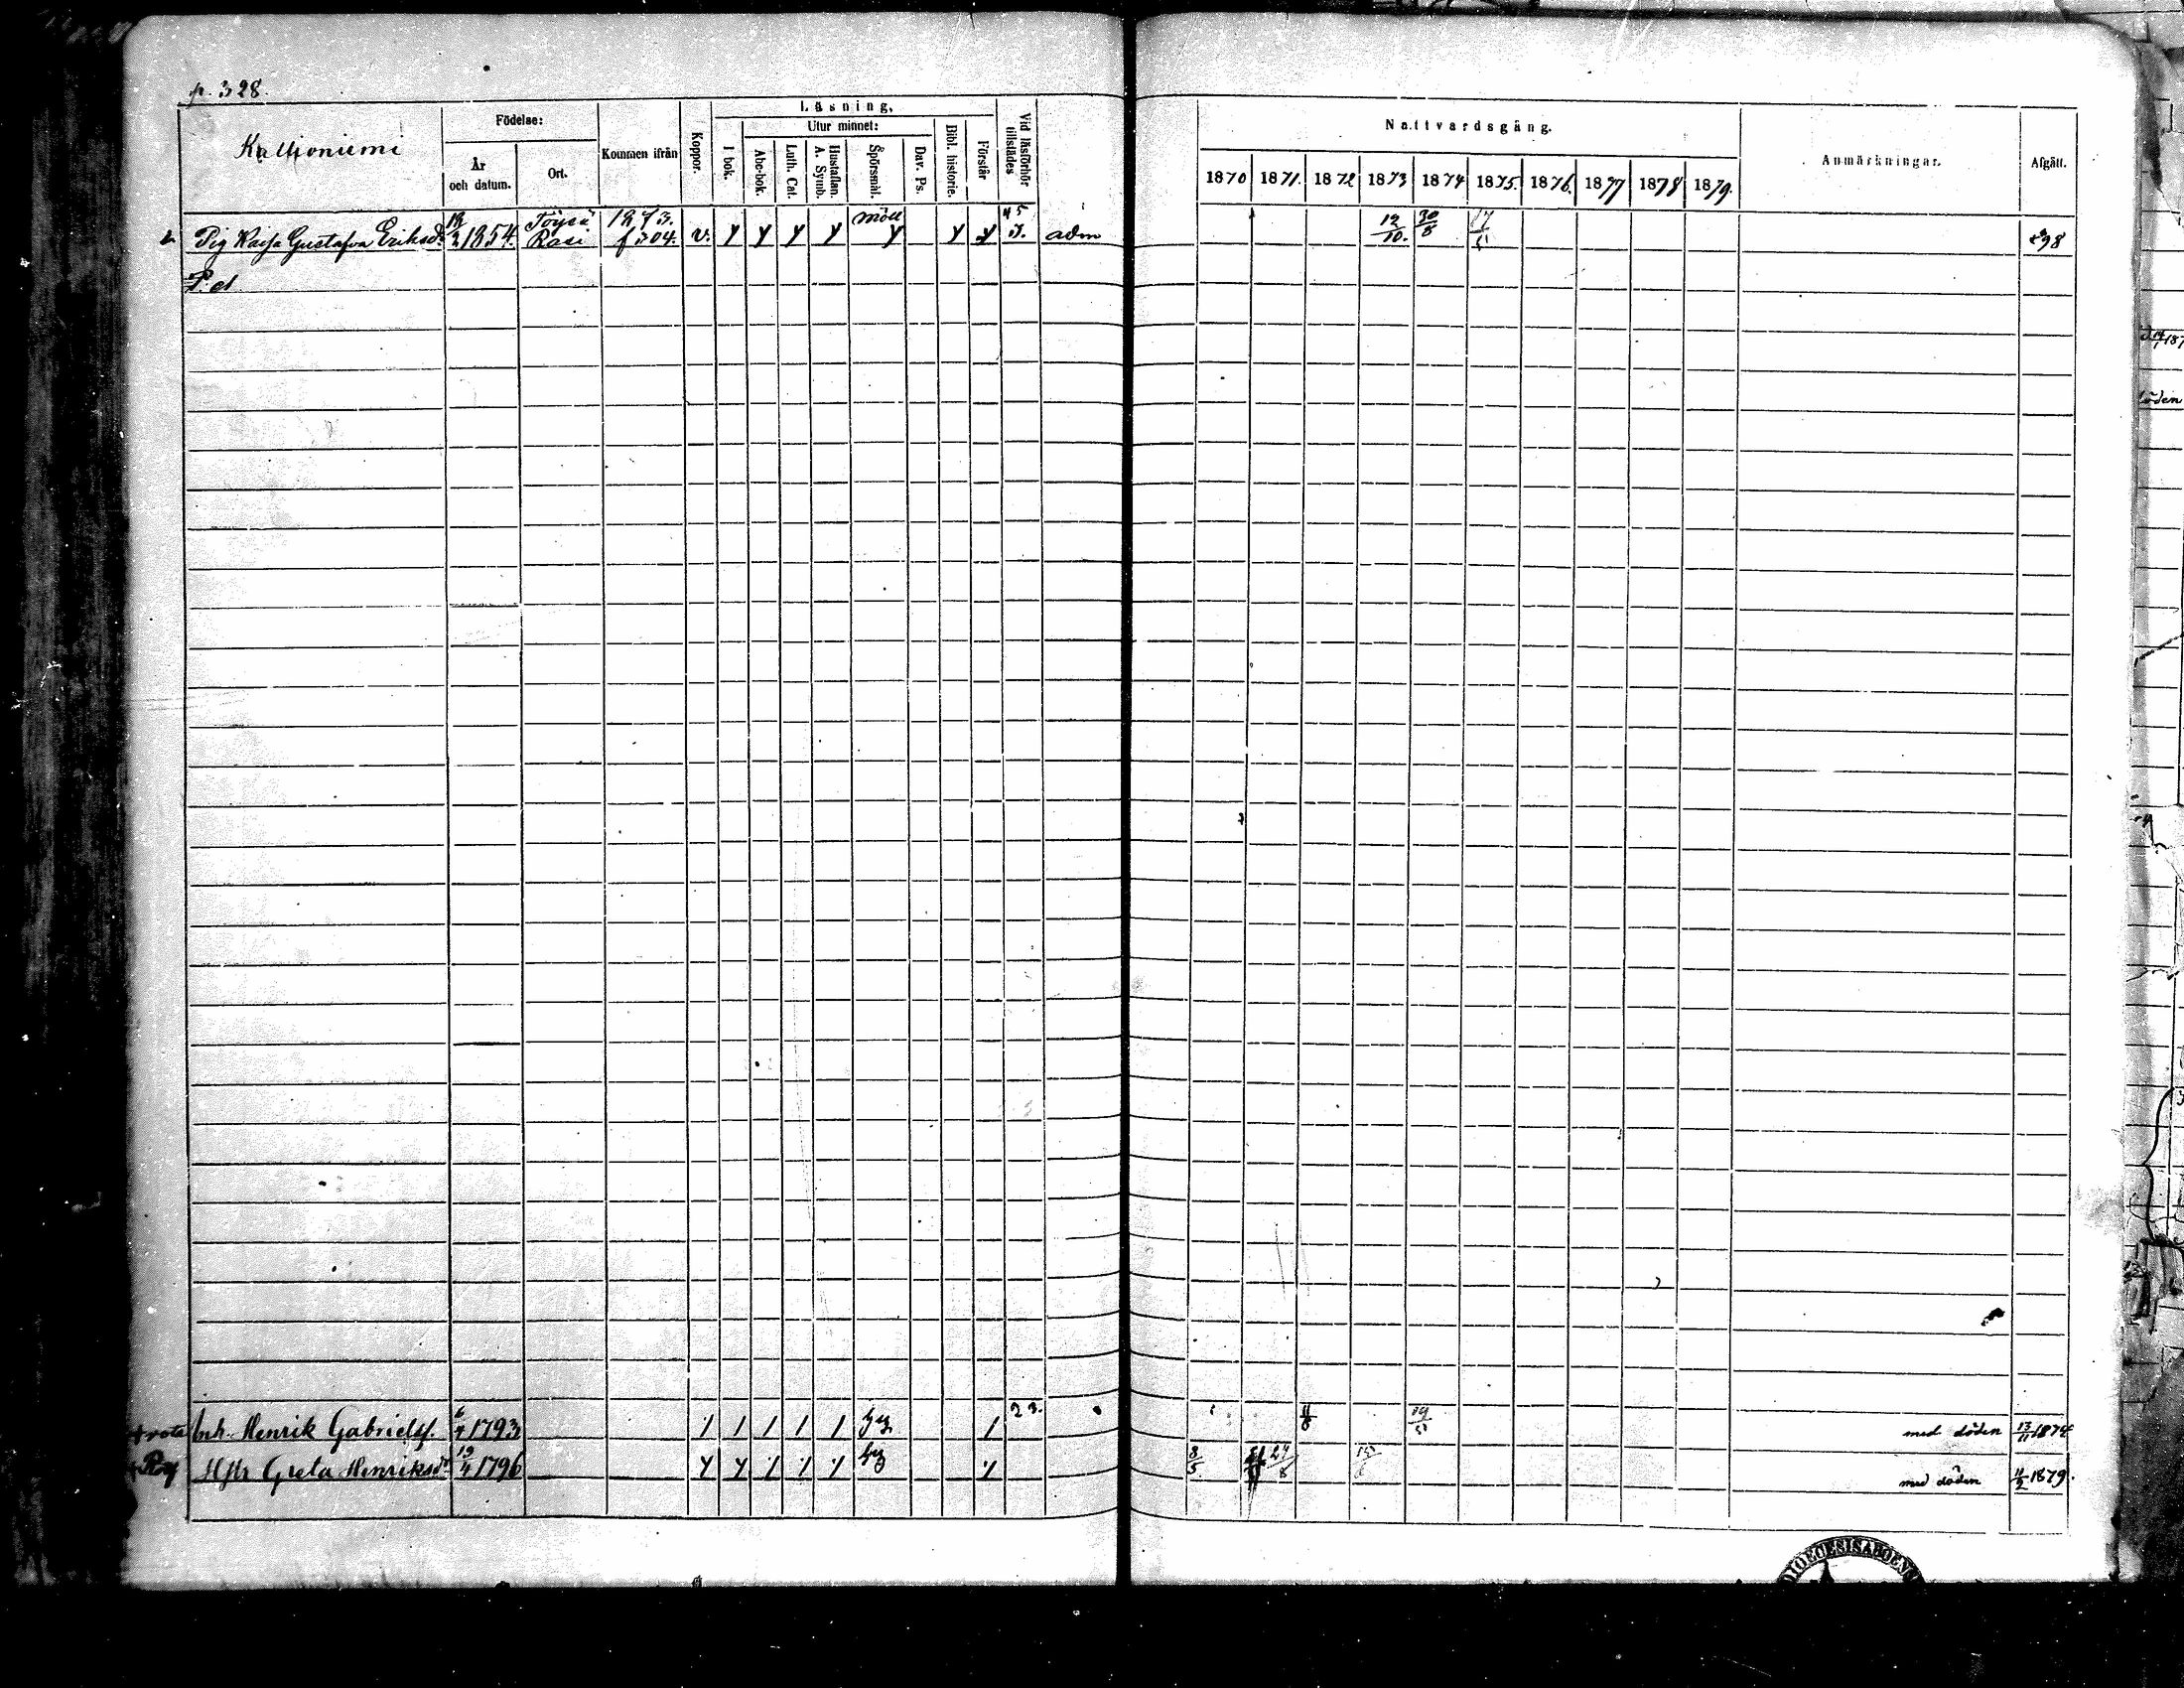 p. 328.
Kallioniemi
Födelse:
År och datum.
Ort.
Kommen ifrån
Koppor.
Läsning.
I bok.
Utur minnet:
Abc-bok.
Luth. Cat.
Hustaflan. A. Symb.
Spörsmål.
Dav. Ps.
Bibl. historie.
Förstår
Vid läsförhör tillstädes
Nattvardsgång.
1870 1871. 1872 1873 1874 1875. 1876. 1877 1878 1879.
Anmärkningar.
Afgått.
Pig Kaisa Gustafva Eriksdr 1854. Töysä Rasi 1873. f 304. v. y y y y möll y y y 45 adm 12/10. 30/8 98
Inh. Henrik Gabrielss. 6/4 1793 23. 19 med döden 13/11 1874
Hstr Greta Henriksdr 19/4 1796 8/5 24/8 med döden 11/2 1879.
DIOECESIS ABOENS